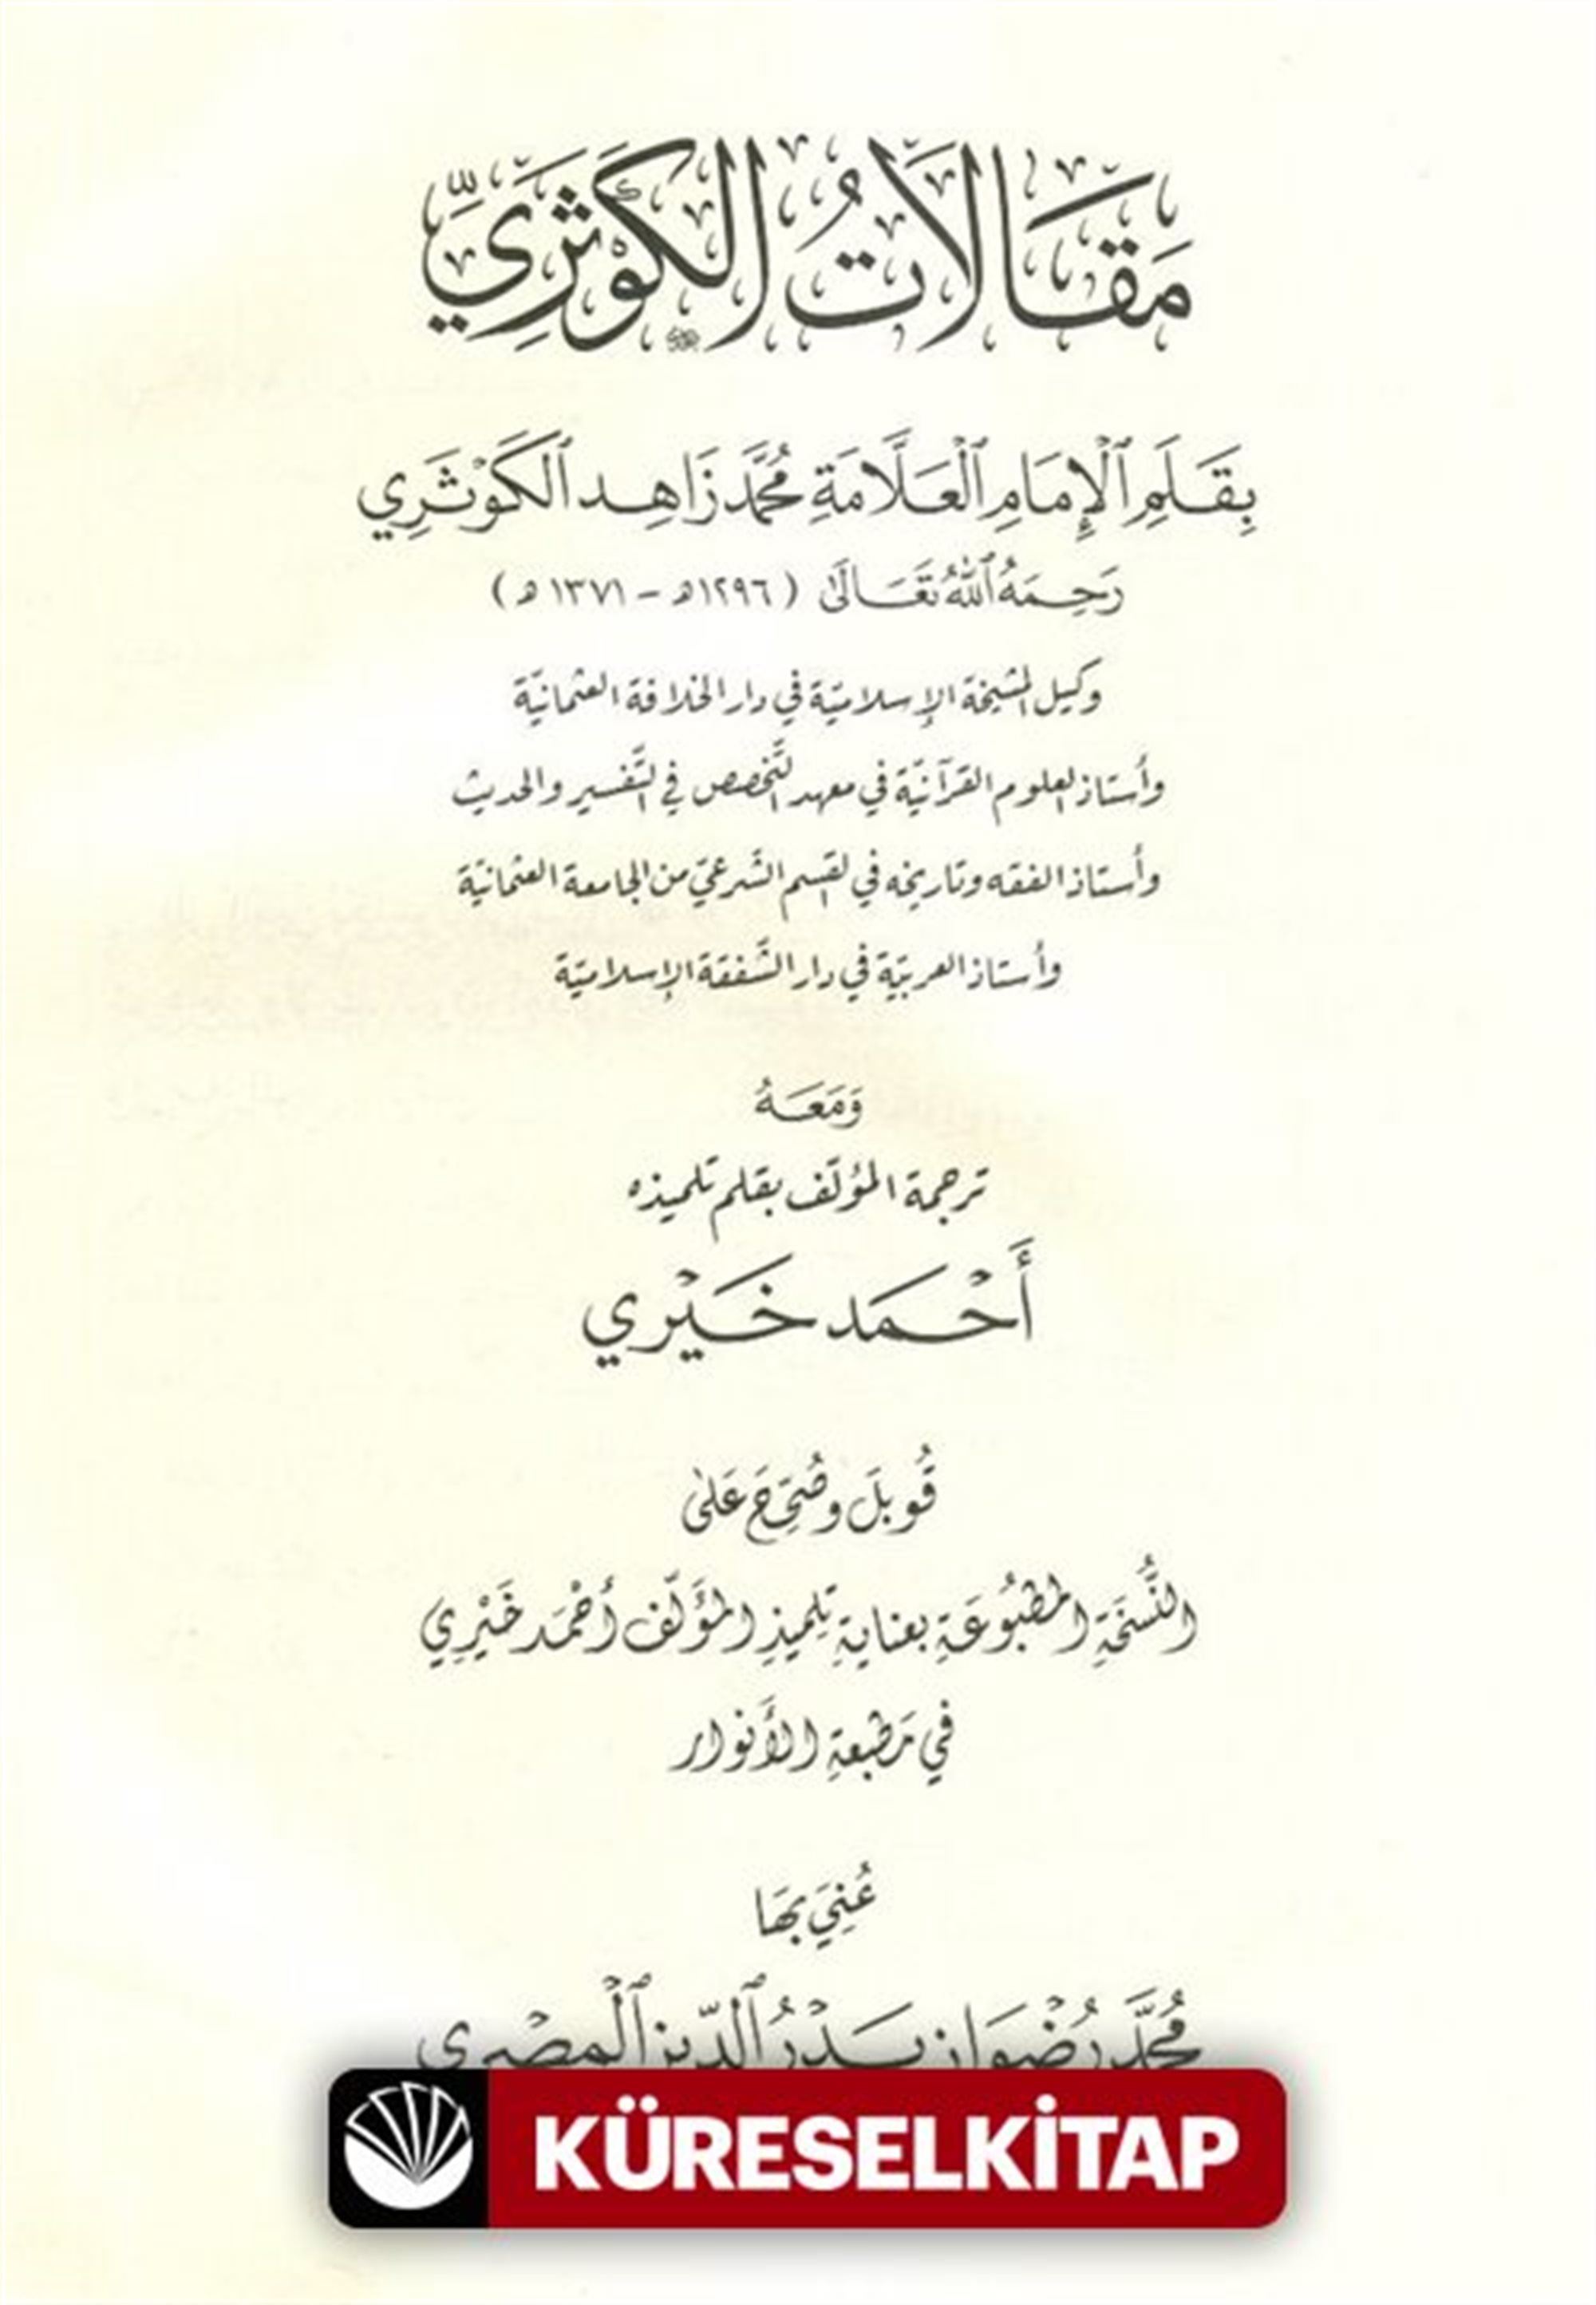 مَقَالَاتُ الْكَوْثَرِيِّ
بِقَلَمِ ٱلْإِمَامِ ٱلْعَلَّامَةِ مُحَمَّد زَاهِد ٱلْكَوْثَرِي
رَحِمَهُ ٱللَّهُ تَعَالَىٰ (١٢٩٦هـ - ١٣٧١هـ)
وكيل المشيخة الإسلاميّة في دار الخلافة العثمانيّة
وأُستاذ العلوم القرآنيّة في معهد التَّخصص في التَّفسير والحديث
وأُستاذ الفقه وتاريخه في القسم الشَّرعيّ من الجامعة العثمانيّة
وأُستاذ العربيّة في دار الشَّفقة الإسلاميّة
وَمَعَهُ
ترجمة المؤلّف بقلم تلميذه
أَحْمَد خَيْرِي
قُوبِلَ وصُحِّحَ عَلىٰ
النُّسْخَةِ المَطْبُوعَةِ بعنايةِ تِلميذِ المؤَلِّف أَحْمَد خَيْرِي
في مَطْبعةِ الأَنوار
عُنِيَ بِهَا
مُحَمَّد رِضْوَان بَدْرُ ٱلدِّين ٱلْمِصْرِي
KÜRESELKİTAP